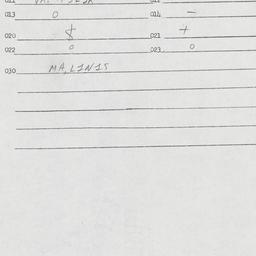 013 0 014 -
020 $ 021 +
022 0 023 0
030 MA, LINIS